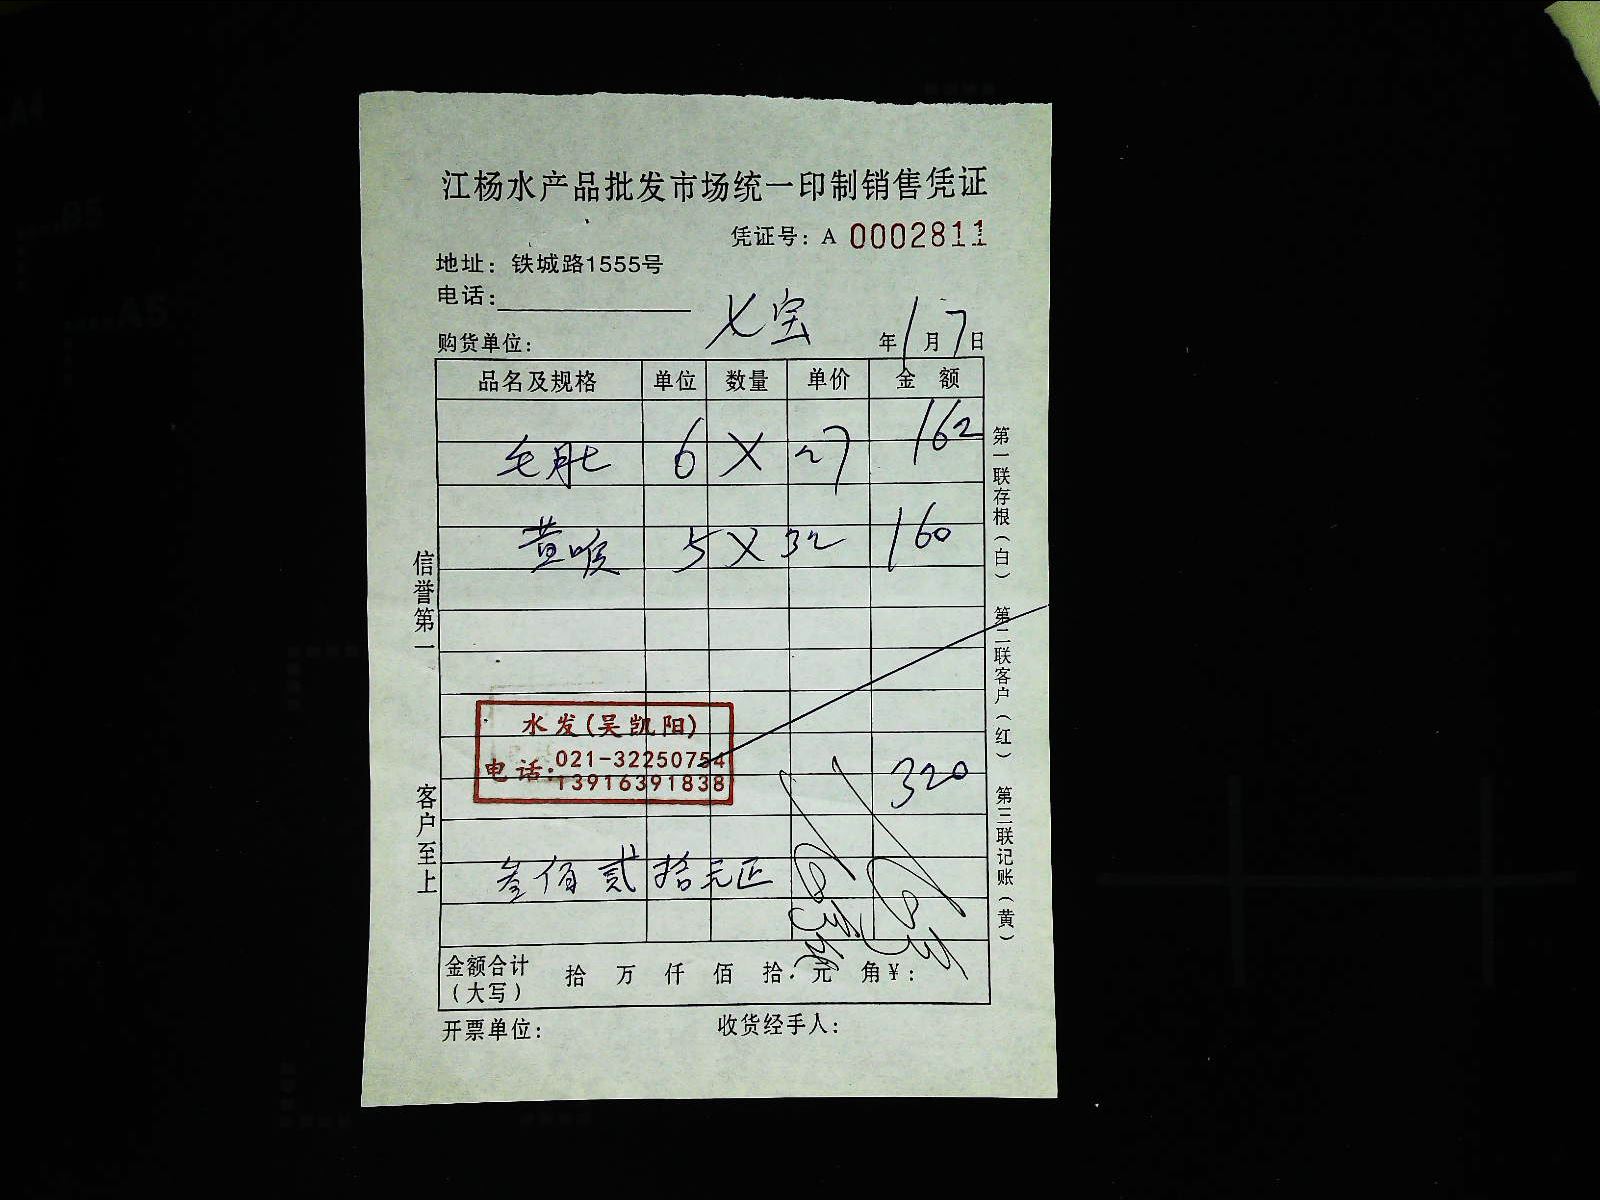 江杨水产品批发市场统一印制销售凭证
凭证号：A 0002811
地址：铁城路1555号
电话：
七宝
购货单位： 年1月7日
品名及规格 单位 数量 单价 金额
毛肚 6 X 27 162
黄喉 5 X 32 160
水发(吴凯阳)
电话：021-32250754
13916391838
320
叁佰贰拾元正
金额合计（大写） 拾 万 仟 佰 拾 元 角¥：
开票单位： 收货经手人：
信誉第一
客户至上
第一联存根（白）
第二联客户（红）
第三联记账（黄）